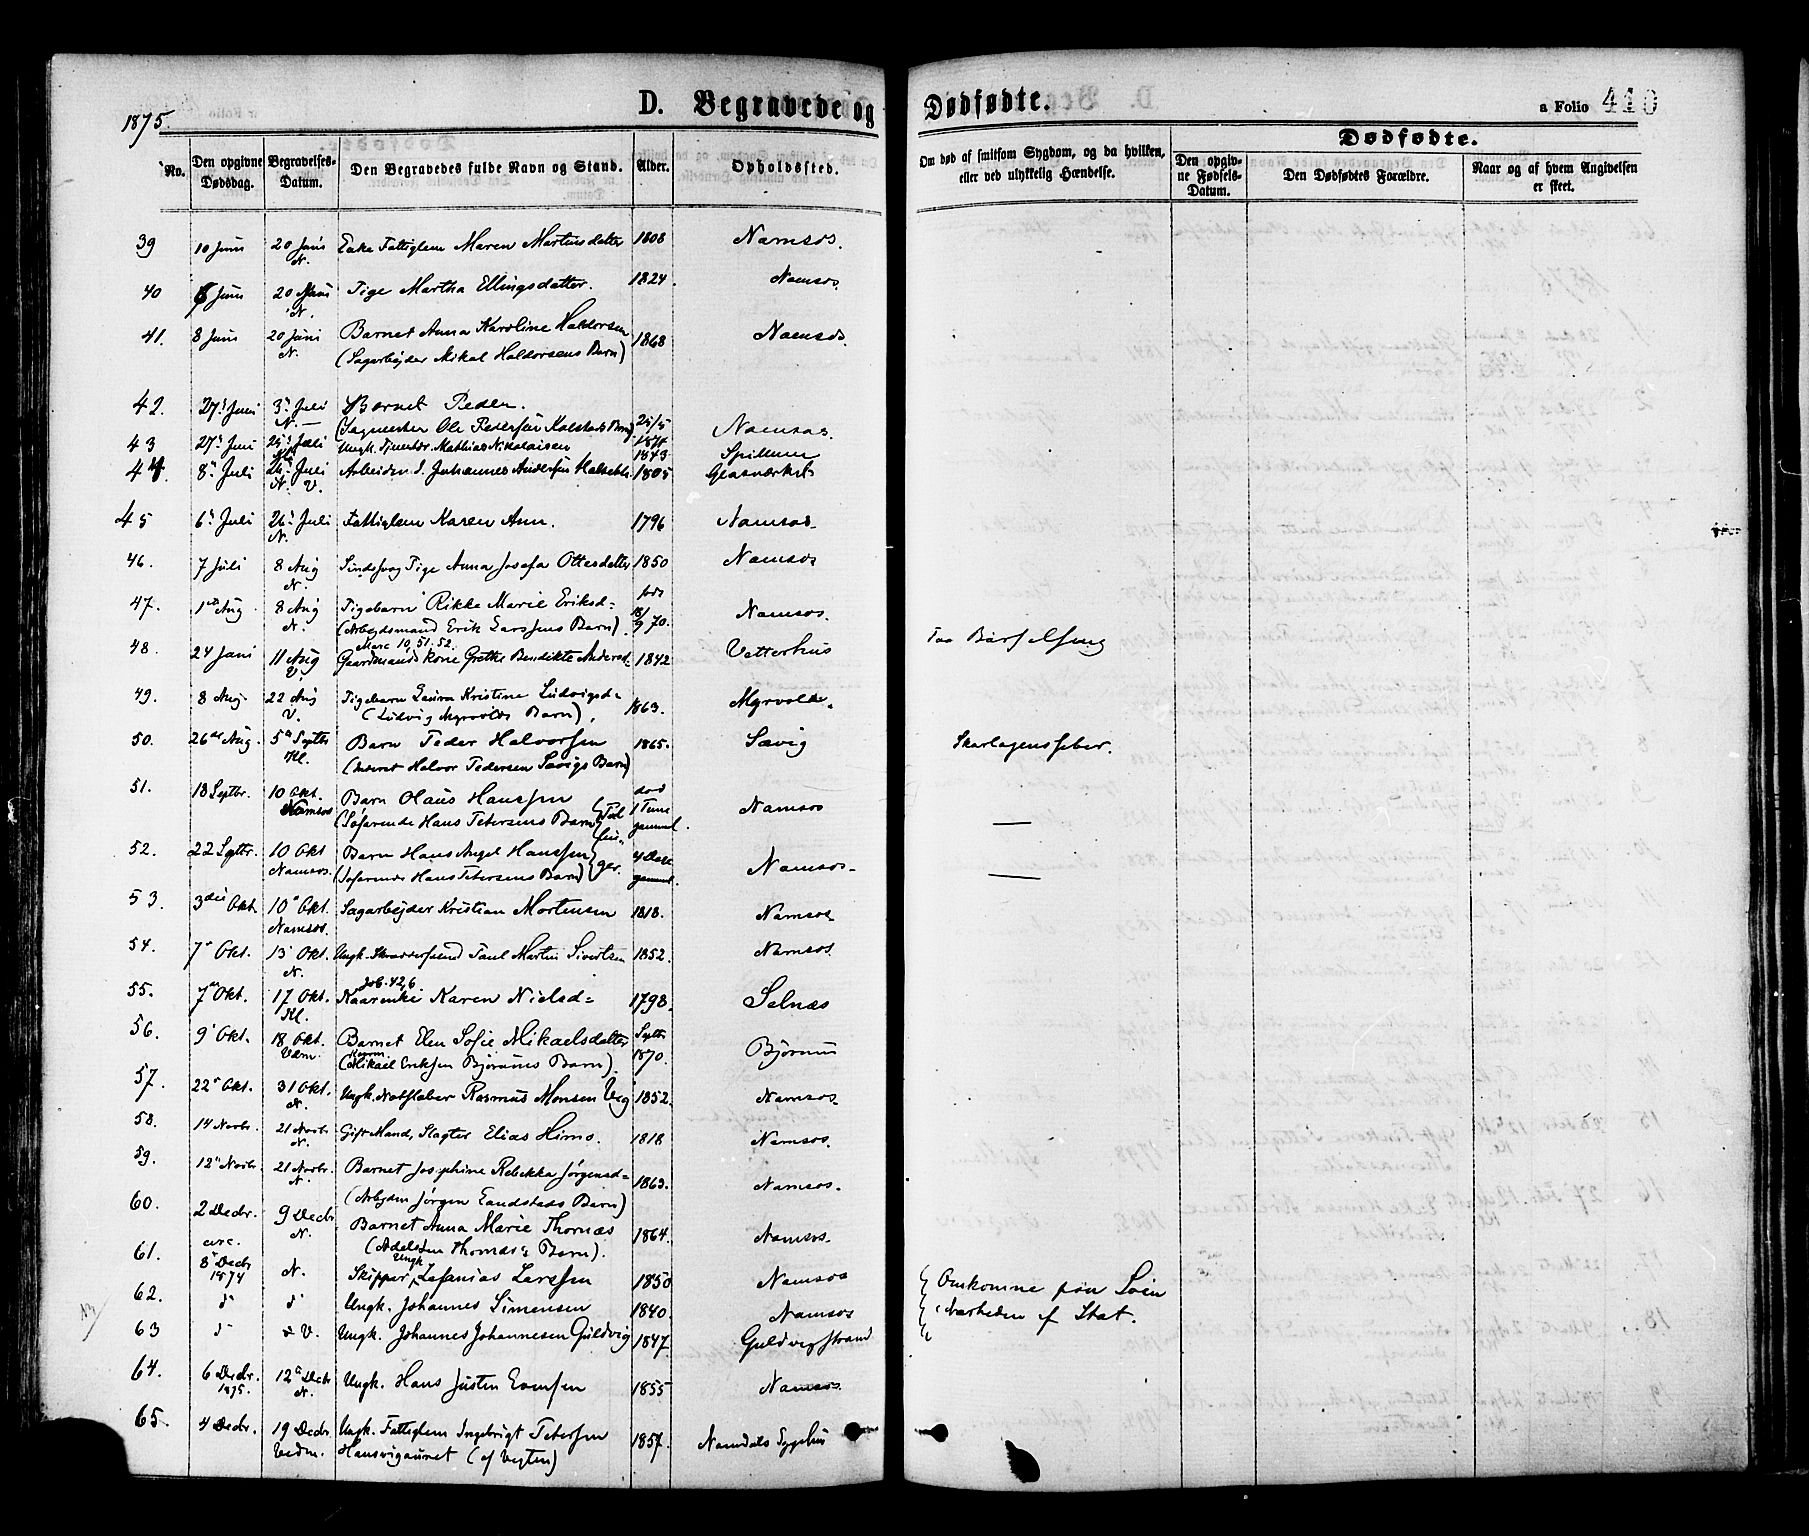 1875.
D. Begravede og Dødfødte.
a Folio 410
No.
Den opgivne Dødsdag.
Begravelses-Datum.
Den Begravedes fulde Navn og Stand.
Alder.
Opholdssted.
Om død af smitsom Sygdom, og da hvilken, eller ved ulykkelig Hændelse.
Dødfødte.
Den opgivne Fødsels-Datum.
Den Dødfødtes Forældre.
Naar og af hvem Angivelsen er skeet.
39 10 Juni 20 Juni N. Enke Fattiglem Maren Martinsdatter 1808 Namsos.
40 6 Juni 20 Juni N. Pige Martha Ellingsdatter. 1824. Namsos
41. 8 Juni 20 Juni N. Barnet Anna Karoline Haldorsen 1868 Namsos.
(Sagarbejder Mikal Haldorsens Barn)
42. 27. Juni 3. Juli N. Barnet Peder.
(Sagmester Ole Pedersen Kolstads Barn) 25/5 1871 Namsos.
43 27. Juni 25. Juli Ungk. Tjenestkr. Mathias Nikolaisen 1843 Spillum
44. 8. Juli 26. Juli N. V. Arbeidsm. J. Johannes Andersen 1805 Glasværket
45 6. Juli 26. Juli N. Fattiglem Karen Ann. 1796 Namsos
46. 7 Juli 8 Aug N. Sindssvag Pige Anna Josefa Ottesdatter 1850 Namsos
47. 1ste Aug 8 Aug N. Pigebarn Rikke Marie Eriksd= født 18/9 70. Namsos.
(Arbejdsmand Erik Larssens Barn).
Marc 10, 51. 52.
48. 24 Juni 11 Aug V. Gaardmandskone Grethe Bendikte Andersd- 1842 Vetterhus Paa Barselseng
49. 8 Aug. 22 Aug V. Pigebarn Laura Kristine Ludvigsd= 1863. Myrvold
(Ludvig Myrvolds Barn),
50. 26de Aug. 5te Septbr Kl. Barn Peder Halvorsen 1865. Sævig Skarlagensfeber.
(Inderst Halvor Pedersen Sævigs Barn)
51. 18 Septbr. 10 Okt. Namsos Barn Olaus Hanssen død 1 Time gammel. Namsos —
(Søfarende Hans Petersens Barn) Tvillinger.
52. 22 Septbr. 10 Okt Namsos. Barn Hans Angel Hanssen 4 Dage gammel. Namsos- —
(Søfarende Hans Petersens Barn)
53. 3die Okt. 10. Okt. Namsos. Sagarbejder Kristian Mortensen 1818. Namsos
54. 7. Okt. 13. Okt. N. Ungk. Skræddersvend Paul Martin Sivertsen 1852. Namsos
Job. 42,6
55. 7de Okt. 17 Okt. Kl. Kaarenke Karen Nielsd= 1798. Selnæs
56. 9. Okt. 18 Okt. Vedm. Barnet Elen Sofie Mikaelsdatter Septbr 1870. Bjørnus
(Mikael Eriksen Bjørnus Barn).
57. 22. Okt. 31 Okt. N. Ungk. Rasmus Monsen Veg 1852. Namsos
58. 14 Novbr. 21 Novbr N. Gift Mand, Slagter Elias Himo. 1818 Namsos.
59. 12. Novbr. 21 Novbr N. Barnet Josephine Rebekka Jørgensd= 1863. Namsos.
(Arbejdsm Jørgen Landstads Barn)
60. 2 Decbr. 9 Decbr N. Barnet Anna Marie Thornæs 1864. Namsos.
61. circ. 8. Decbr 1874 N. Skipper, Ungk. Zefanias Larssen 1850 Namsos Omkomne paa Søen
62. d d Ungk. Johannes Simensen 1840. Namsos i Nærheden af Stat.
63 d d V. Ungk. Johannes Johannesen Guldvig 1847. Guldvigstrand
64. 6 Decbr. 1875. 12. Decbr N. Ungk. Hans Justen Evensen 1855 Namsos
65. 4 Decbr. 19 Decbr. Vedm. Ungk. Fattiglem Ingebrigt Petersen 1857. Namdals Sygehus